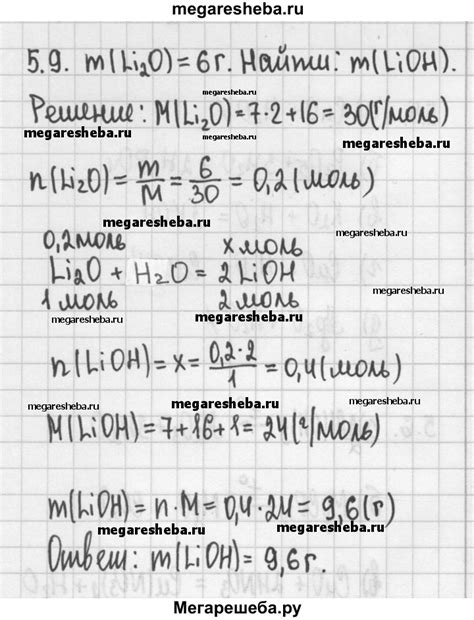 megaresheba.ru
5.9. m(Li₂O)=6г. Найти: m(LiOH).
megaresheba.ru
Решение: M(Li₂O)=7·2+16=30(г/моль)
megaresheba.ru megaresheba.ru
n(Li₂O)=m/M=6/30=0,2(моль)
megaresheba.ru
0,2моль x моль
megaresheba.ru
Li₂O + H₂O = 2LiOH
megaresheba.ru
1 моль 2 моль
megaresheba.ru megaresheba.ru
n(LiOH)=x=0,2·2/1=0,4(моль)
megaresheba.ru
megaresheba.ru megaresheba.ru
M(LiOH)=7+16+1=24(г/моль)
megaresheba.ru
m(LiOH)=n·M=0,4·24=9,6(г)
megaresheba.ru megaresheba.ru
Ответ: m(LiOH)=9,6г.
megaresheba.ru
Мегарешеба.ру